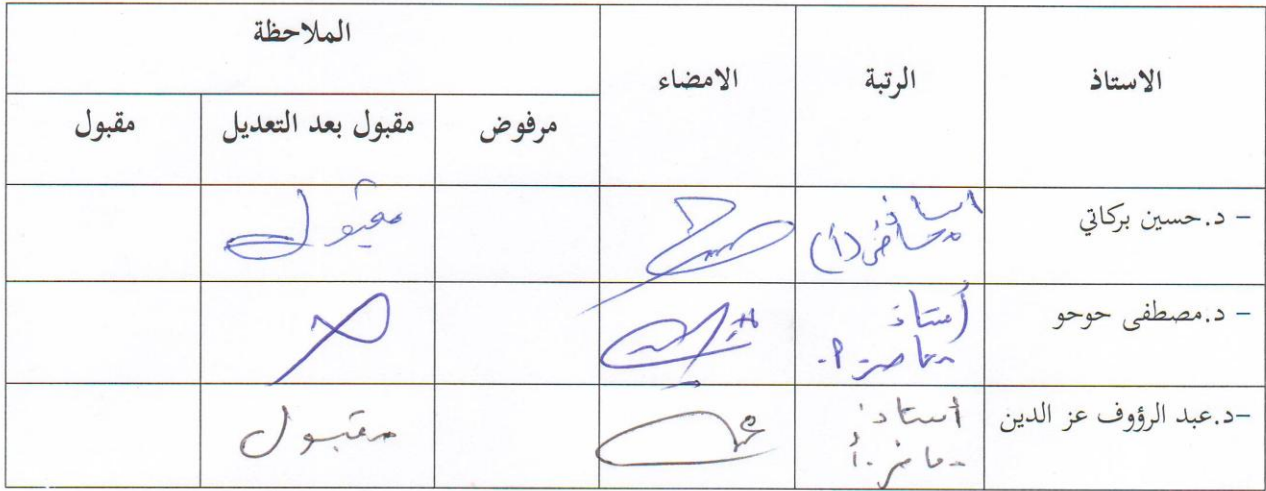 الاستاذ الرتبة الامضاء الملاحظة
مرفوض مقبول بعد التعديل مقبول
- د.حسين بركاتي استاذ محاضر (أ) مقبول
- د.مصطفى حوحو أستاذ
-د.عبد الرؤوف عز الدين أستاذ مقبول